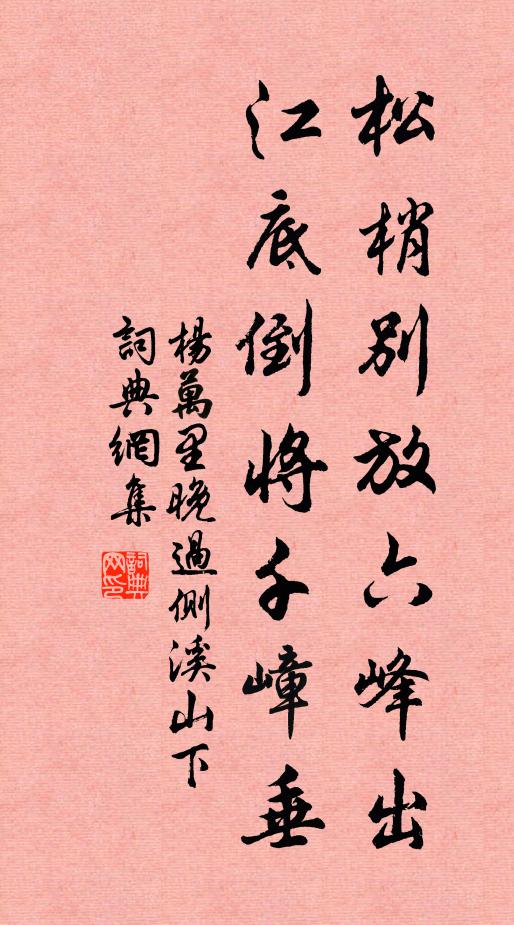 松梢別放六峰出
江底倒將千嶂垂
楊萬里晚過側溪山下
詞典網集
詞典网印